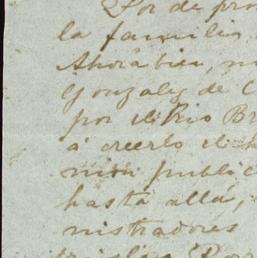 Por de pro
la familia
Ahora bien, m
Gonzalez de C
por el Rio Br
á creerlo el h
nion public
hasta allá,
nistradores